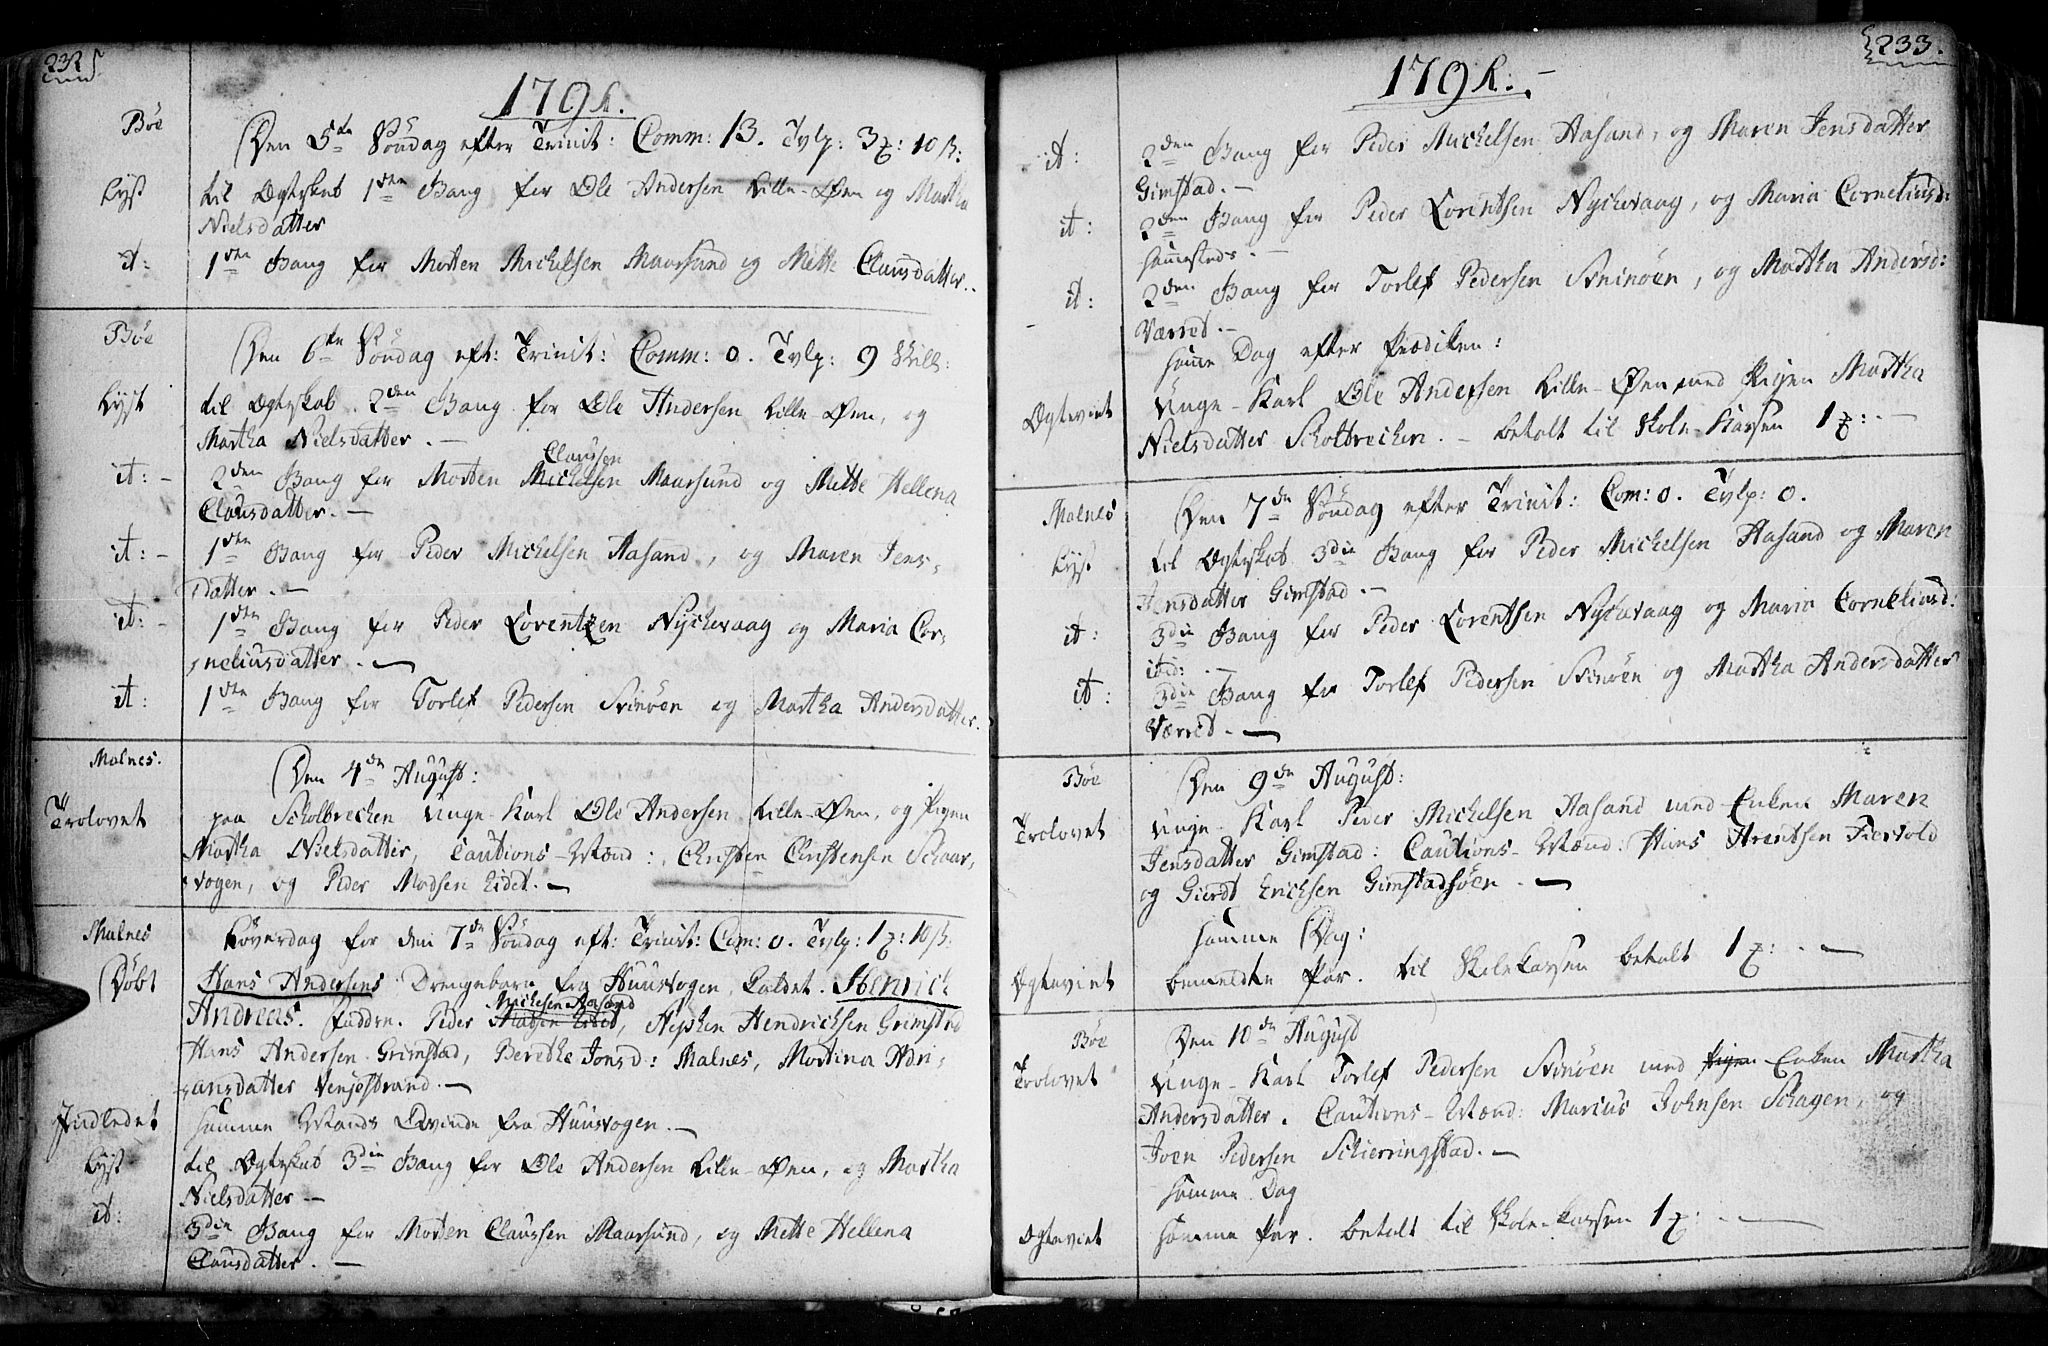 232
1792.
Bøe
Den 5te Söndag efter Trinit: Comm: 13. Tvlp: 3 : 10 ß:
Lyst til Ægteskab 1ste Gang for Ole Andersen Lille-Øen og Martha
Nielsdatter
it: 1ste Gang for Morten Michelsen Maarsund og Mette Clausdatter.
Bøe
Den 6te Söndag eft: Trinit: Comm: 0. Tvlp: 9 Skill:
Lyst til Ægteskab 2den Gang for Ole Andersen Lille-Øen, og
Martha Nielsdatter. —
Claussen
it: - 2den Gang for Morten Michelsen Maarsund og Mette Hellena
Clausdatter. —
it: - 1ste Gang for Peder Michelsen Aasand, og Maren Jens-
datter. —
it: - 1ste Gang for Peder Lorentzen Nyckevaag og Maria Cor-
neliusdatter. —
it: 1ste Gang for Torlef Pedersen Svinöen og Martha Andersdatter.
Malnes.
Den 4de August:
Trolovet paa Scholbrechen Unge-Karl Ole Andersen Lille-Øen, og Pigen
Martha Nielsdatter, Cautions-Mænd: Christen Christensen Schaar-
vogen, og Peder Madsen Eidet. —
Malnes Löverdag for den 7de Söndag eft: Trinit: Com: 0. Tvlp: 1 : 10 ß:
Döbt Hans Andersens Drengebarn fra Huusvogen, Kaldet. Henrich
Michelsen Aasand
Andreas. Faddre. Peder Madsen Eidet, Stephen Hendrichsen Grimstad
Hans Andersen Grimstad, Berethe Jonsd: Malnes, Martina Adri-
ansdatter Venjestrand. —
Indledet samme Mands Qvinde fra Huusvogen. —
Lyst til Ægteskab 3die Gang for Ole Andersen Lille-Øen, og Martha
Nielsdatter —
it: 3die Gang for Morten Claussen Maarsund, og Mette Hellena
Clausdatter. —
233.
1792. —
it: 2den Gang for Peder Michelsen Aasand, og Maren Jensdatter
Gimstad. —
it: 2den Gang for Peder Lorentsen Nyckevaag, og Maria Corneliusd:
sammesteds. —
it: 2den Gang for Torlef Pedersen Svinöen, og Martha Andersd:
Værret. —
samme Dag efter Prædiken:
Ægteviet Unge-Karl Ole Andersen Lille-Øen med Pigen Martha
Nielsdatter Scholbrechen. — betalt til Skole-Kassen 1 : —
Malnes Den 7de Söndag efter Trinit: Com: 0. Tvlp: 0.
Lyst til Ægteskab 3die Gang for Peder Michelsen Aasand og Maren
Jensdatter Gimstad. —
it: 3die Gang for Peder Lorentsen Nyckevaag og Maria Corneliusd:
ibid: —
it: 3die Gang for Torlef Pedersen Svinöen og Martha Andersdatter
Værret. —
Bøe Den 9de August:
Trolovet Unge-Karl Peder Michelsen Aasand med Enken Maren
Jensdatter Gimstad: Cautions-Mænd: Hans Arentsen Fiervold
og Gierdt Erichsen Gimstadsöen. —
samme Dag:
Ægteviet bemeldte Par. til Skolekassen betalt 1 : —
Bøe Den 10de August
Trolovet Unge-Karl Torlef Pedersen Svinöen med Pigen Enken Martha
Andersdatter. Cautions-Mænd: Marcus Johnsen Schagen, og
Joen Pedersen Schierringstad. —
samme Dag
Ægteviet samme Par. betalt til Skole-kassen 1 : —